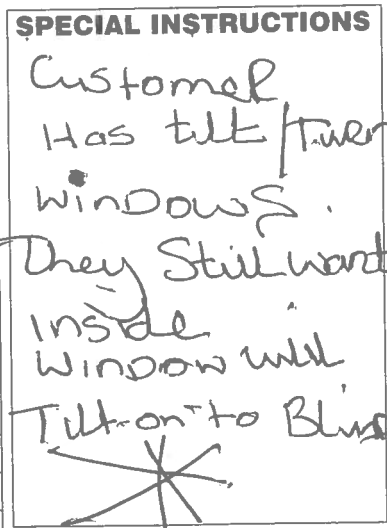 SPECIAL INSTRUCTIONS
Customer
Has tilt/Turn
WINDOWS.
They Still want
Inside
WINDOW will
Tilt-on-to Blind